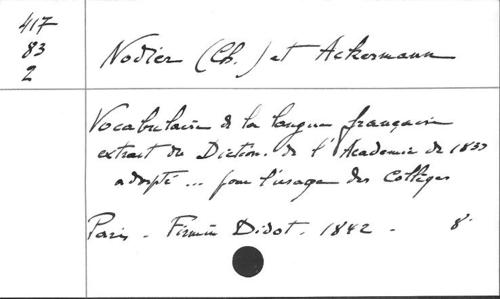 417
83
2
Nodier (Ch.) et Ackermann
Vocabulaire de la langue française
extrait du Diction. de l'Academie de 1835
adopté ... pour l'usage des Collèges
Paris - Firmin Didot. 1842 - 8°